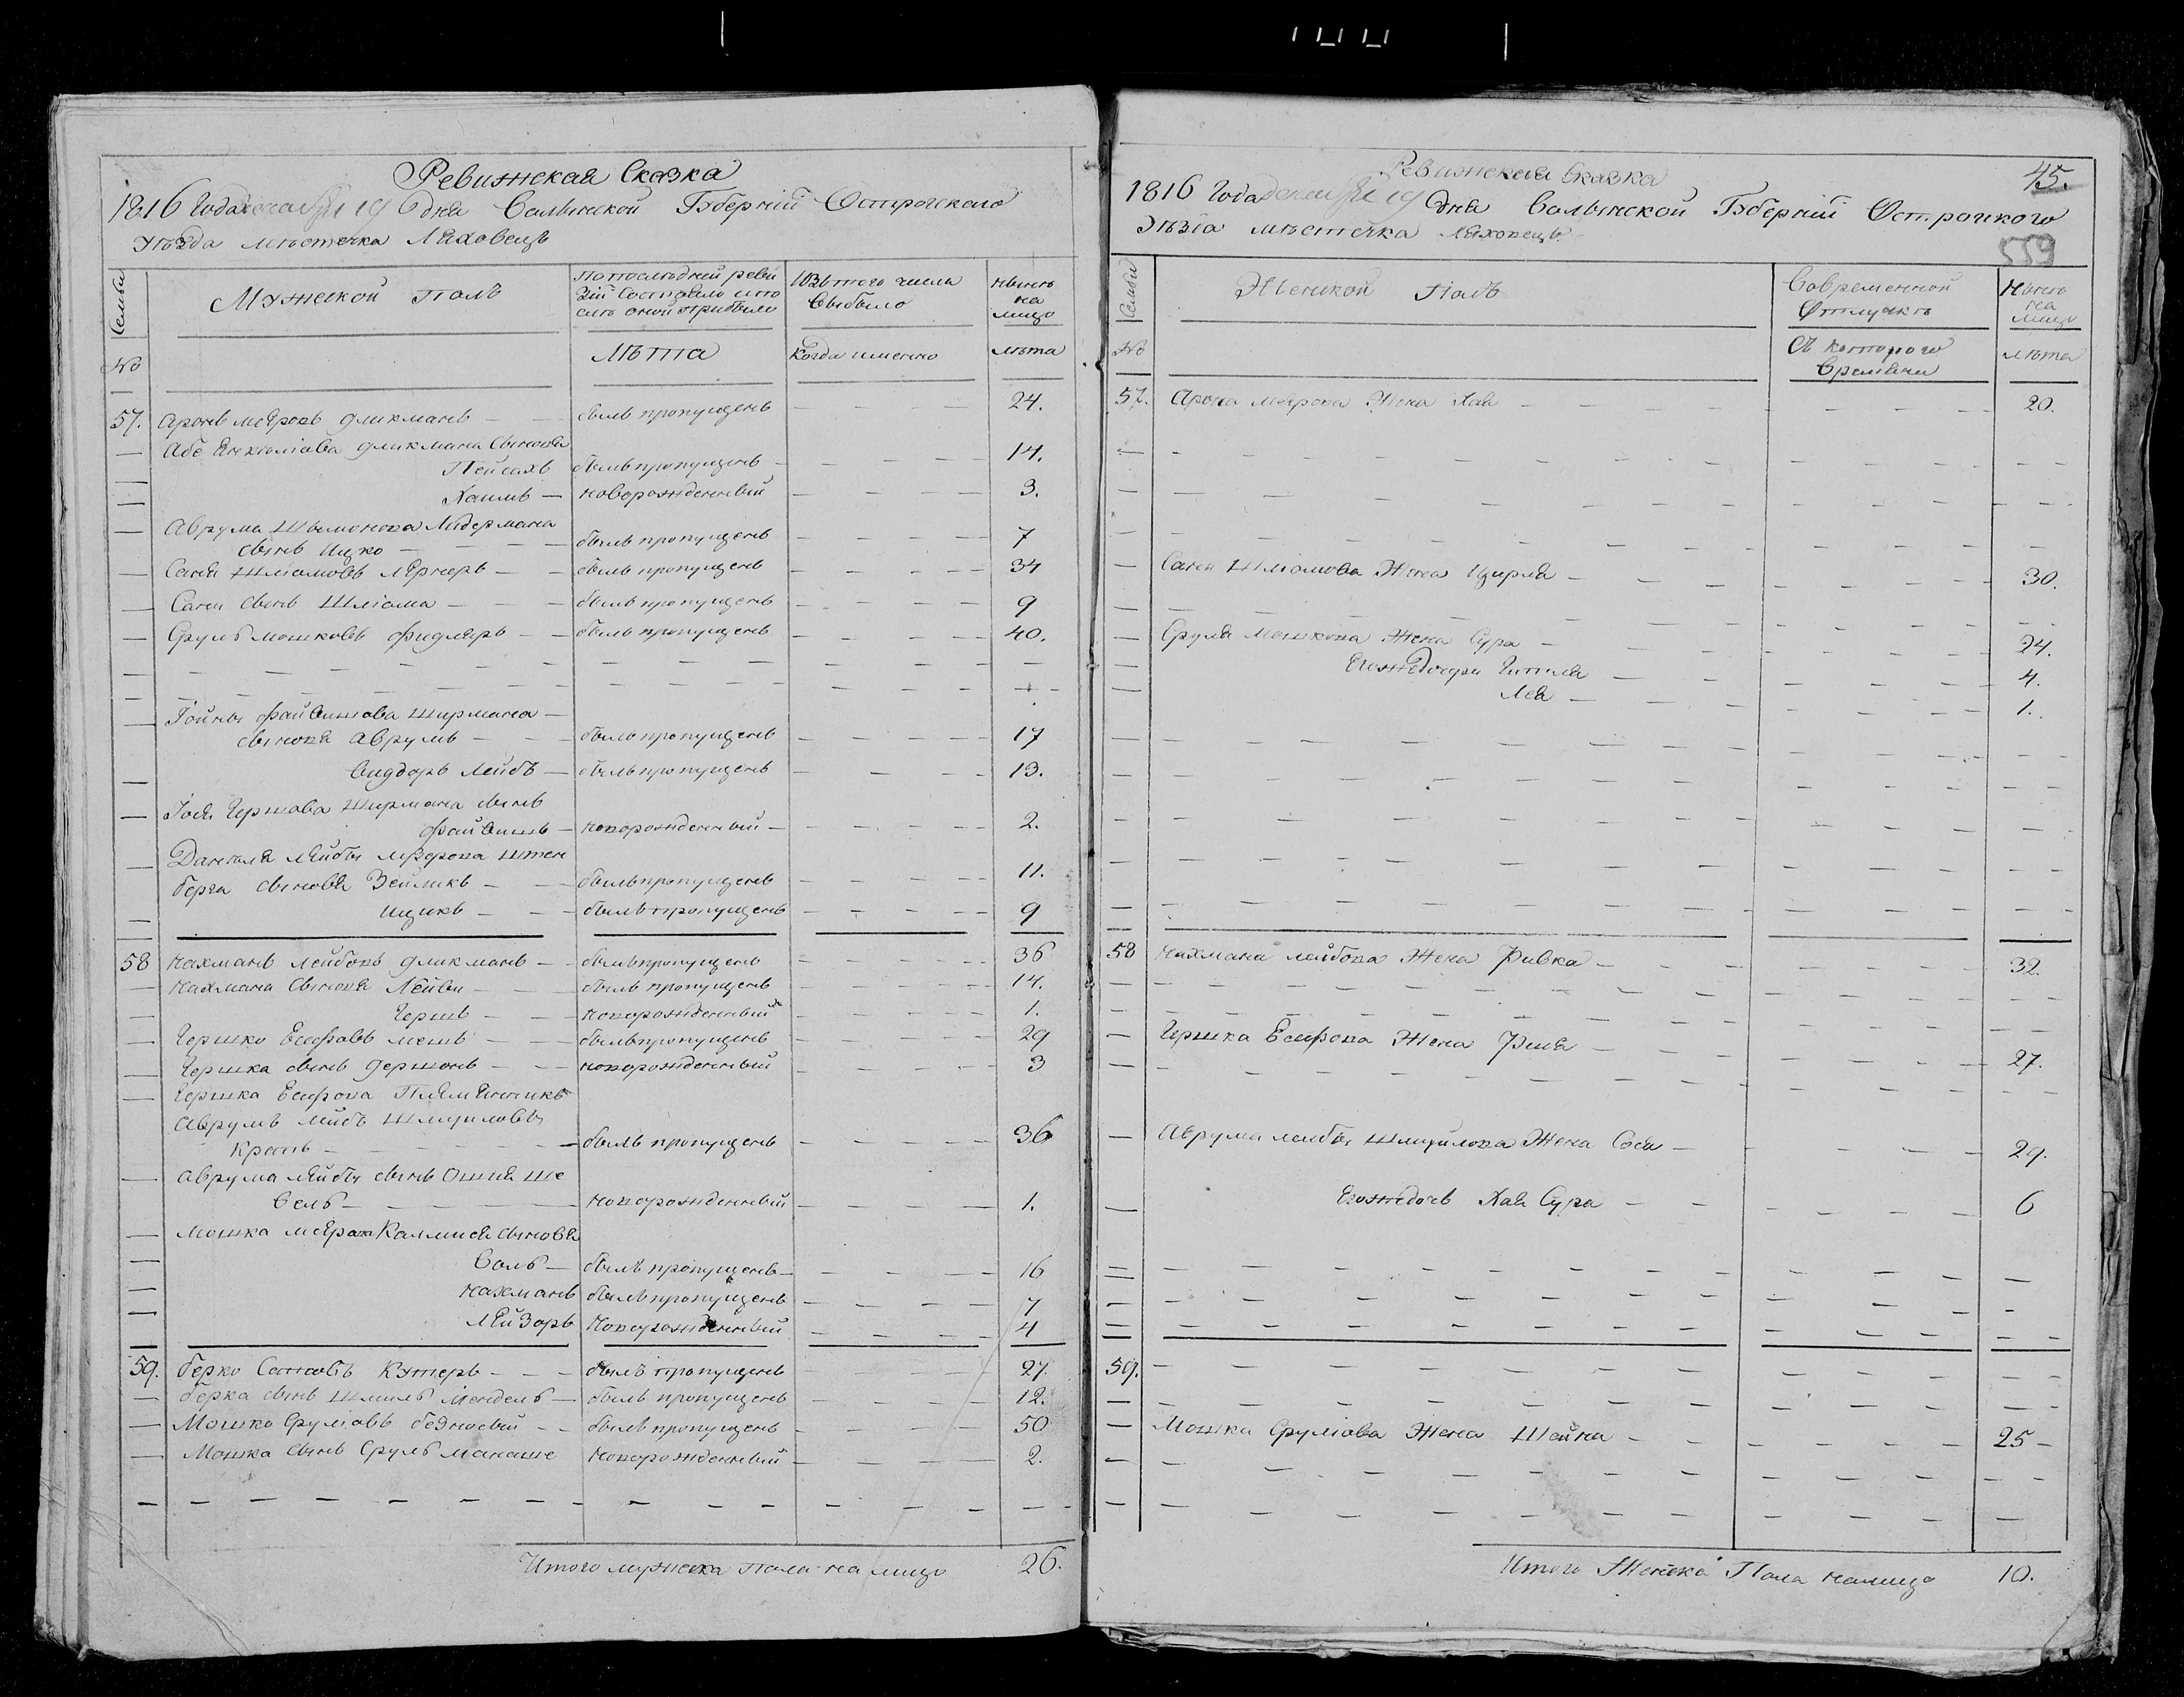 Ревижская Сказка
1816 Года декабря 19 дня Волынской Губерніи Острогского
Уѣзда мѣстечка Ляховецъ
Семьи
Мужеской полъ
По последней реви
зіи состояло и по
слѣ оной прибыло
Изъ того числа
выбыло
Нынѣ
на
лицо
№
Лѣта
Когда именно
лѣта
57. Аронъ Меяровъ Гликманъ — былъ пропущенъ — 24.
Абе Янкеліова Гликмана сыновя
Пейсахъ былъ пропущенъ — 14.
Хаимъ — новорожденный — 3.
Аврума Шымонова Лидермана
сынъ Ицко — былъ пропущенъ — 7
Саня Шліомовъ Лернеръ — былъ пропущенъ — 34
Сани сынъ Шліома — былъ пропущенъ — 9
Сруль Мошковъ Фидлеръ — былъ пропущенъ — 40.
Гойны Файвишова Ширмана —
сыновя Аврумъ — былъ пропущенъ — 17
Видоръ Лейбъ — былъ пропущенъ — 13.
Іося Гершова Ширмана сынъ
Файвишъ — новорожденный — 2.
Даніеля Лейбы Штен
берга сыновя Зейликъ — былъ пропущенъ — 11.
Ицикъ — былъ пропущенъ — 9
58 Нахманъ Лейбовъ Гликманъ — былъ пропущенъ — 36
Нахмана сыновя Лейви — былъ пропущенъ — 14.
Гершъ — новорожденный — 1.
Гершко Есифовъ — былъ пропущенъ — 29
Гершка сынъ Гершонъ — новорожденный — 3
Гершка Есифова Племянникъ
Аврумъ Лейбъ Шмуиловъ
Кротъ — былъ пропущенъ — 36
Аврума Лейбы сынъ Ошия Ше
вель — новорожденный — 1.
Мошка Меярова Калмиса сыновя
Волъ — былъ пропущенъ — 16
Нахманъ былъ пропущенъ — 7
Лейзоръ новорожденный — 4
59. Берко Кушеръ — былъ пропущенъ — 27.
Берка сынъ Шмиль Мендель — былъ пропущенъ — 12.
Мошко Сруліовъ — былъ пропущенъ — 50
Мошка сынъ Сруль Манаше новорожденный — 2.
Итого мужеска пола на лицо 26.
45.
Ревижская Сказка
1816 Года декабря 19 дня Волынской Губерніи Острогского
Уѣзда мѣстечка Ляховецъ
559
Семьи
Женской полъ
Во временной
Отлучкѣ
Нынѣ
на
лицо
№
Съ которого
времени
лѣта
57. Арона Меярова Жена Хая — 20.
Сани Шліомова Жена Цирля — 30.
Сруля Мошкова Жена Сура — 24.
Егожъ Дочери Гитля — 4.
Лея — 1.
58 Нахмана Лейбова Жена Ривка — 32.
Гершка Есифова Жена Рися — 27.
Аврума Лейбы Шмуилова Жена Сося — 29.
Егожъ дочь Хая Сура — 6
59.
Мошка Сруліова Жена Шейна — 25 —
Итого Женска Пола на лицо 10.